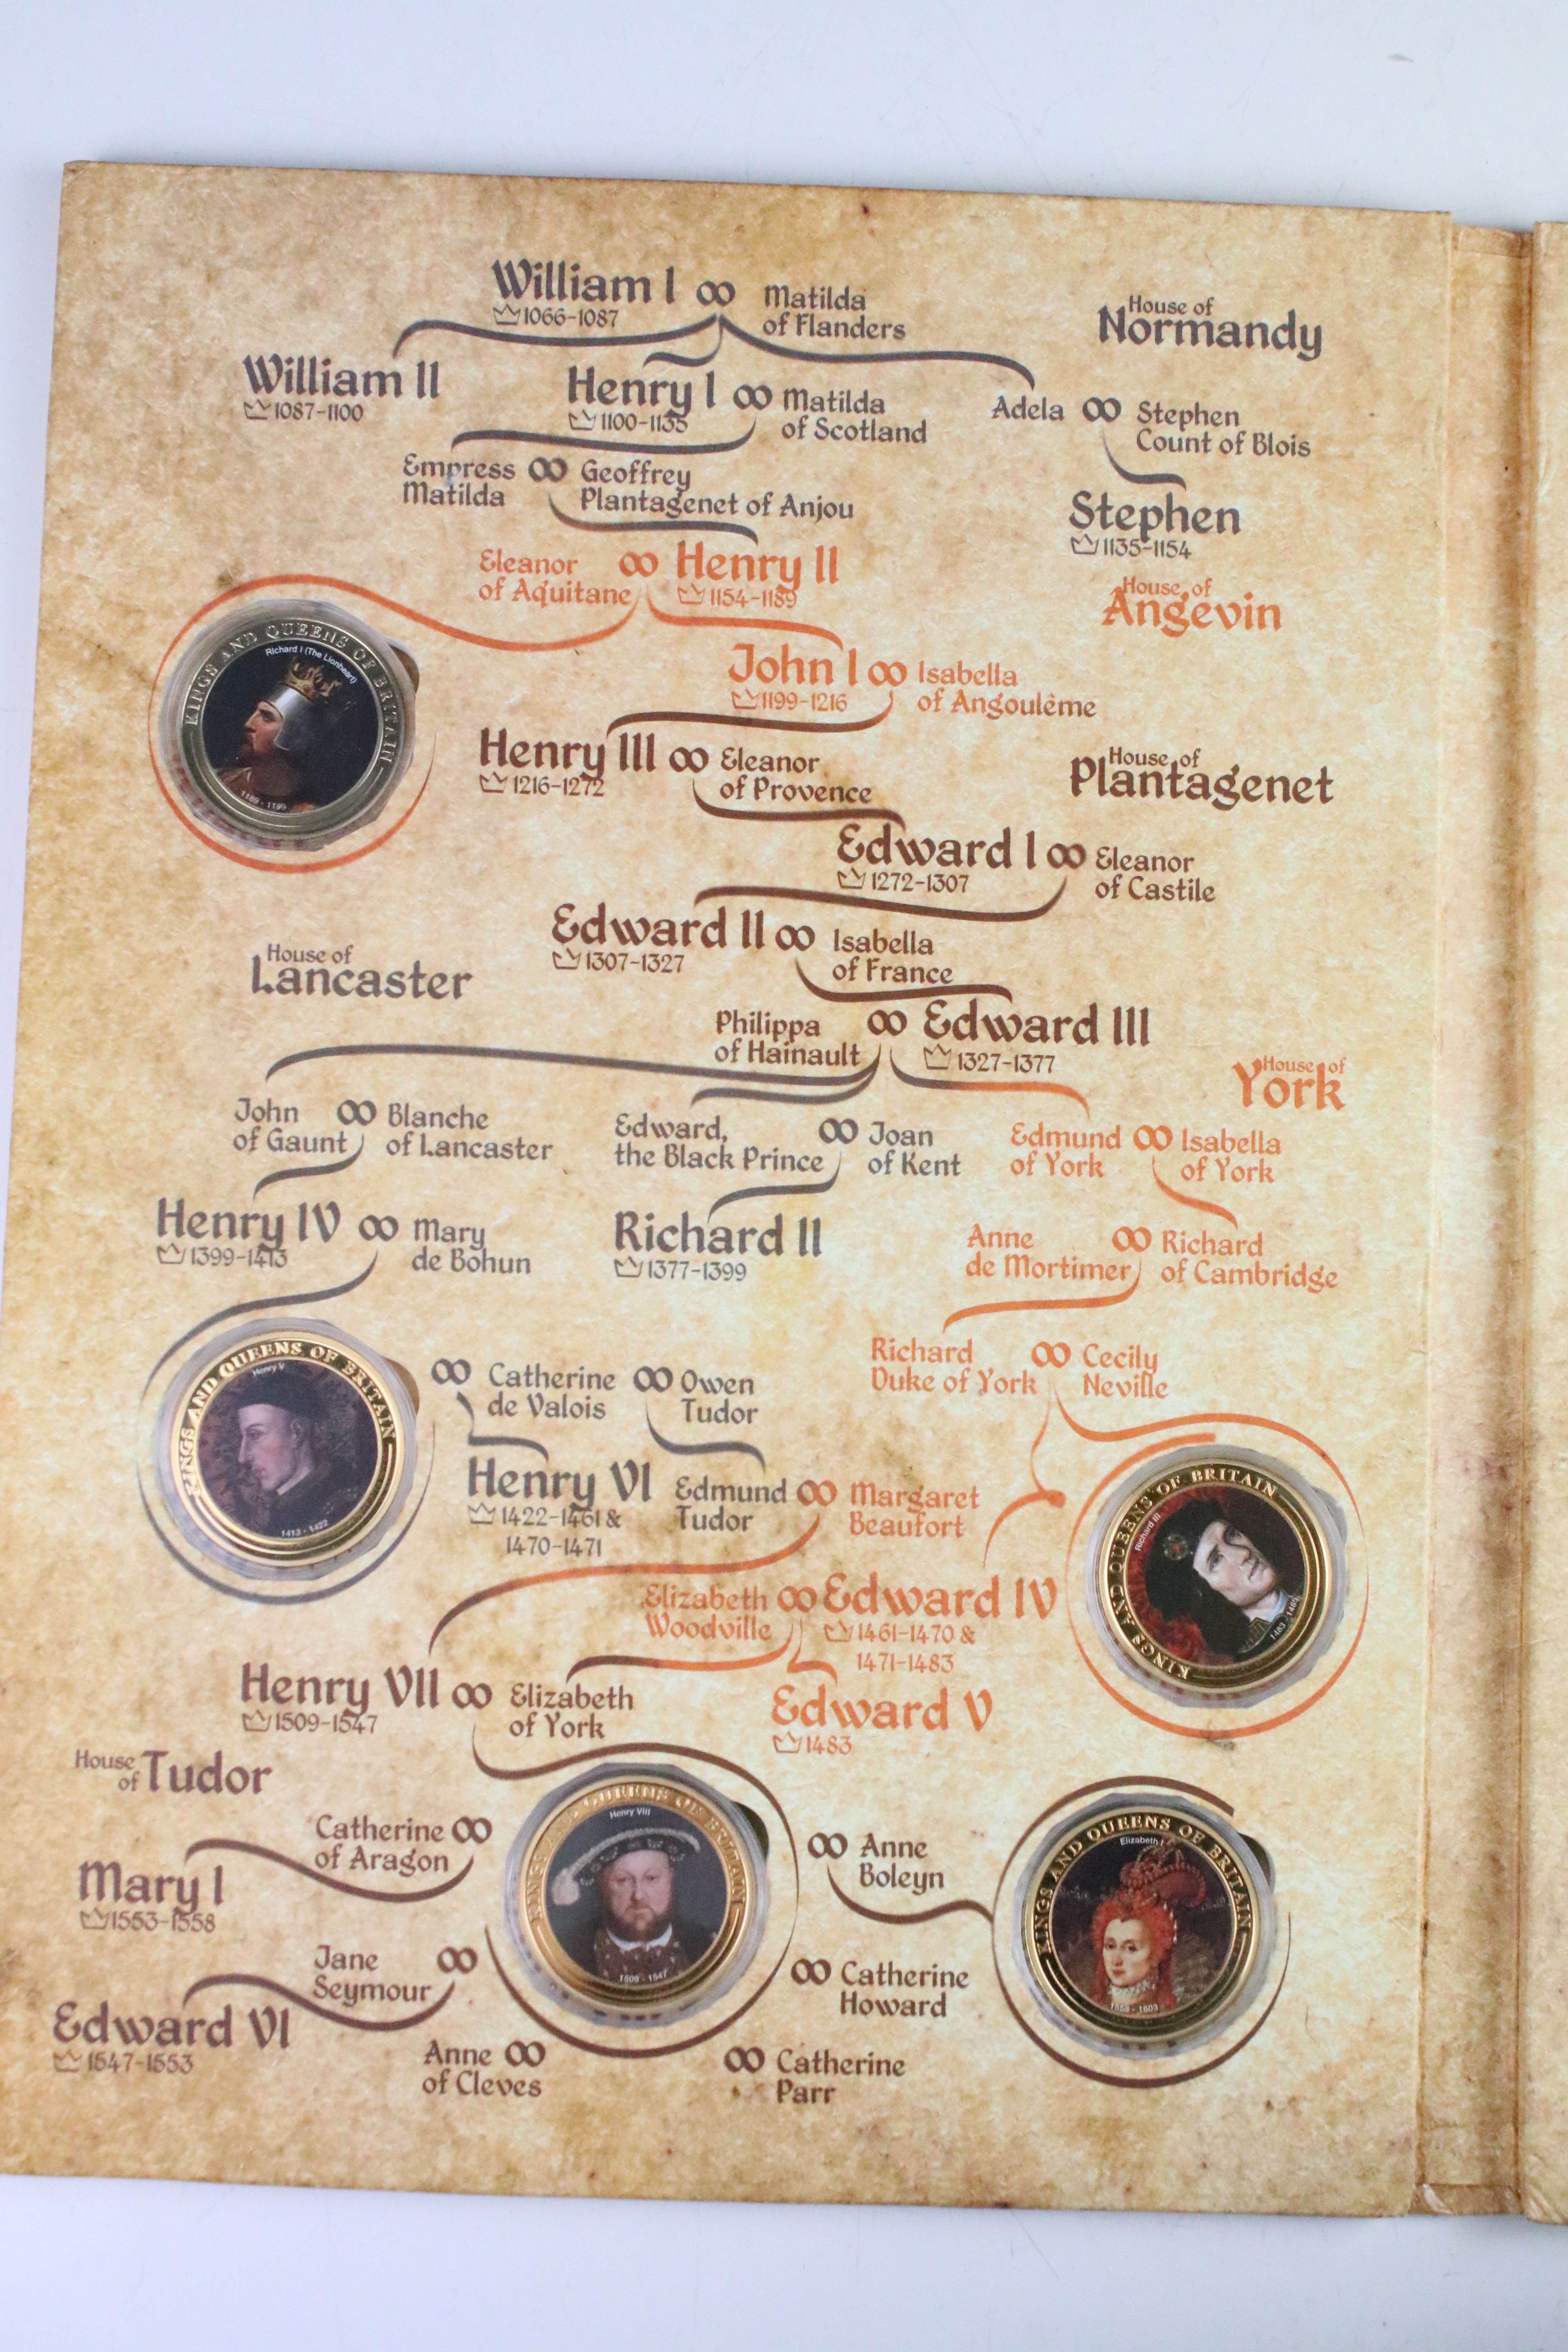 William I ∞ Matilda
1066-1087 of Flanders
House of
Normandy
William II
1087-1100
Henry I ∞ Matilda
1100-1135 of Scotland
Adela ∞ Stephen
Count of Blois
Empress ∞ Geoffrey
Matilda Plantagenet of Anjou
Stephen
1135-1154
Eleanor ∞ Henry II
of Aquitaine 1154-1189
House of
Angevin
KINGS AND QUEENS OF BRITAIN
Richard I (The Lionheart)
1189 - 1199
John I ∞ Isabella
1199-1216 of Angoulême
Henry III ∞ Eleanor
1216-1272 of Provence
House of
Plantagenet
Edward I ∞ Eleanor
1272-1307 of Castile
Edward II ∞ Isabella
1307-1327 of France
House of
Lancaster
Philippa ∞ Edward III
of Hainault 1327-1377
House of
York
John ∞ Blanche
of Gaunt of Lancaster
Edward, ∞ Joan
the Black Prince of Kent
Edmund ∞ Isabella
of York of York
Henry IV ∞ Mary
1399-1413 de Bohun
Richard II
1377-1399
Anne ∞ Richard
de Mortimer of Cambridge
Richard ∞ Cecily
Duke of York Neville
KINGS AND QUEENS OF BRITAIN
Henry V
1413 - 1422
∞ Catherine ∞ Owen
de Valois Tudor
Henry VI
1422-1461 &
1470-1471
Edmund ∞ Margaret
Tudor Beaufort
KINGS AND QUEENS OF BRITAIN
Richard III
1483 - 1485
Elizabeth ∞ Edward IV
Woodville 1461-1470 &
1471-1483
Henry VII ∞ Elizabeth
1509-1547 of York
Edward V
1483
House
of Tudor
KINGS AND QUEENS OF BRITAIN
Henry VIII
1509 - 1547
Catherine ∞
of Aragon
Mary I
1553-1558
∞ Anne
Boleyn
KINGS AND QUEENS OF BRITAIN
Elizabeth I
1558 - 1603
Jane ∞
Seymour
Edward VI
1547-1553
∞ Catherine
Howard
Anne ∞
of Cleves
∞ Catherine
Parr